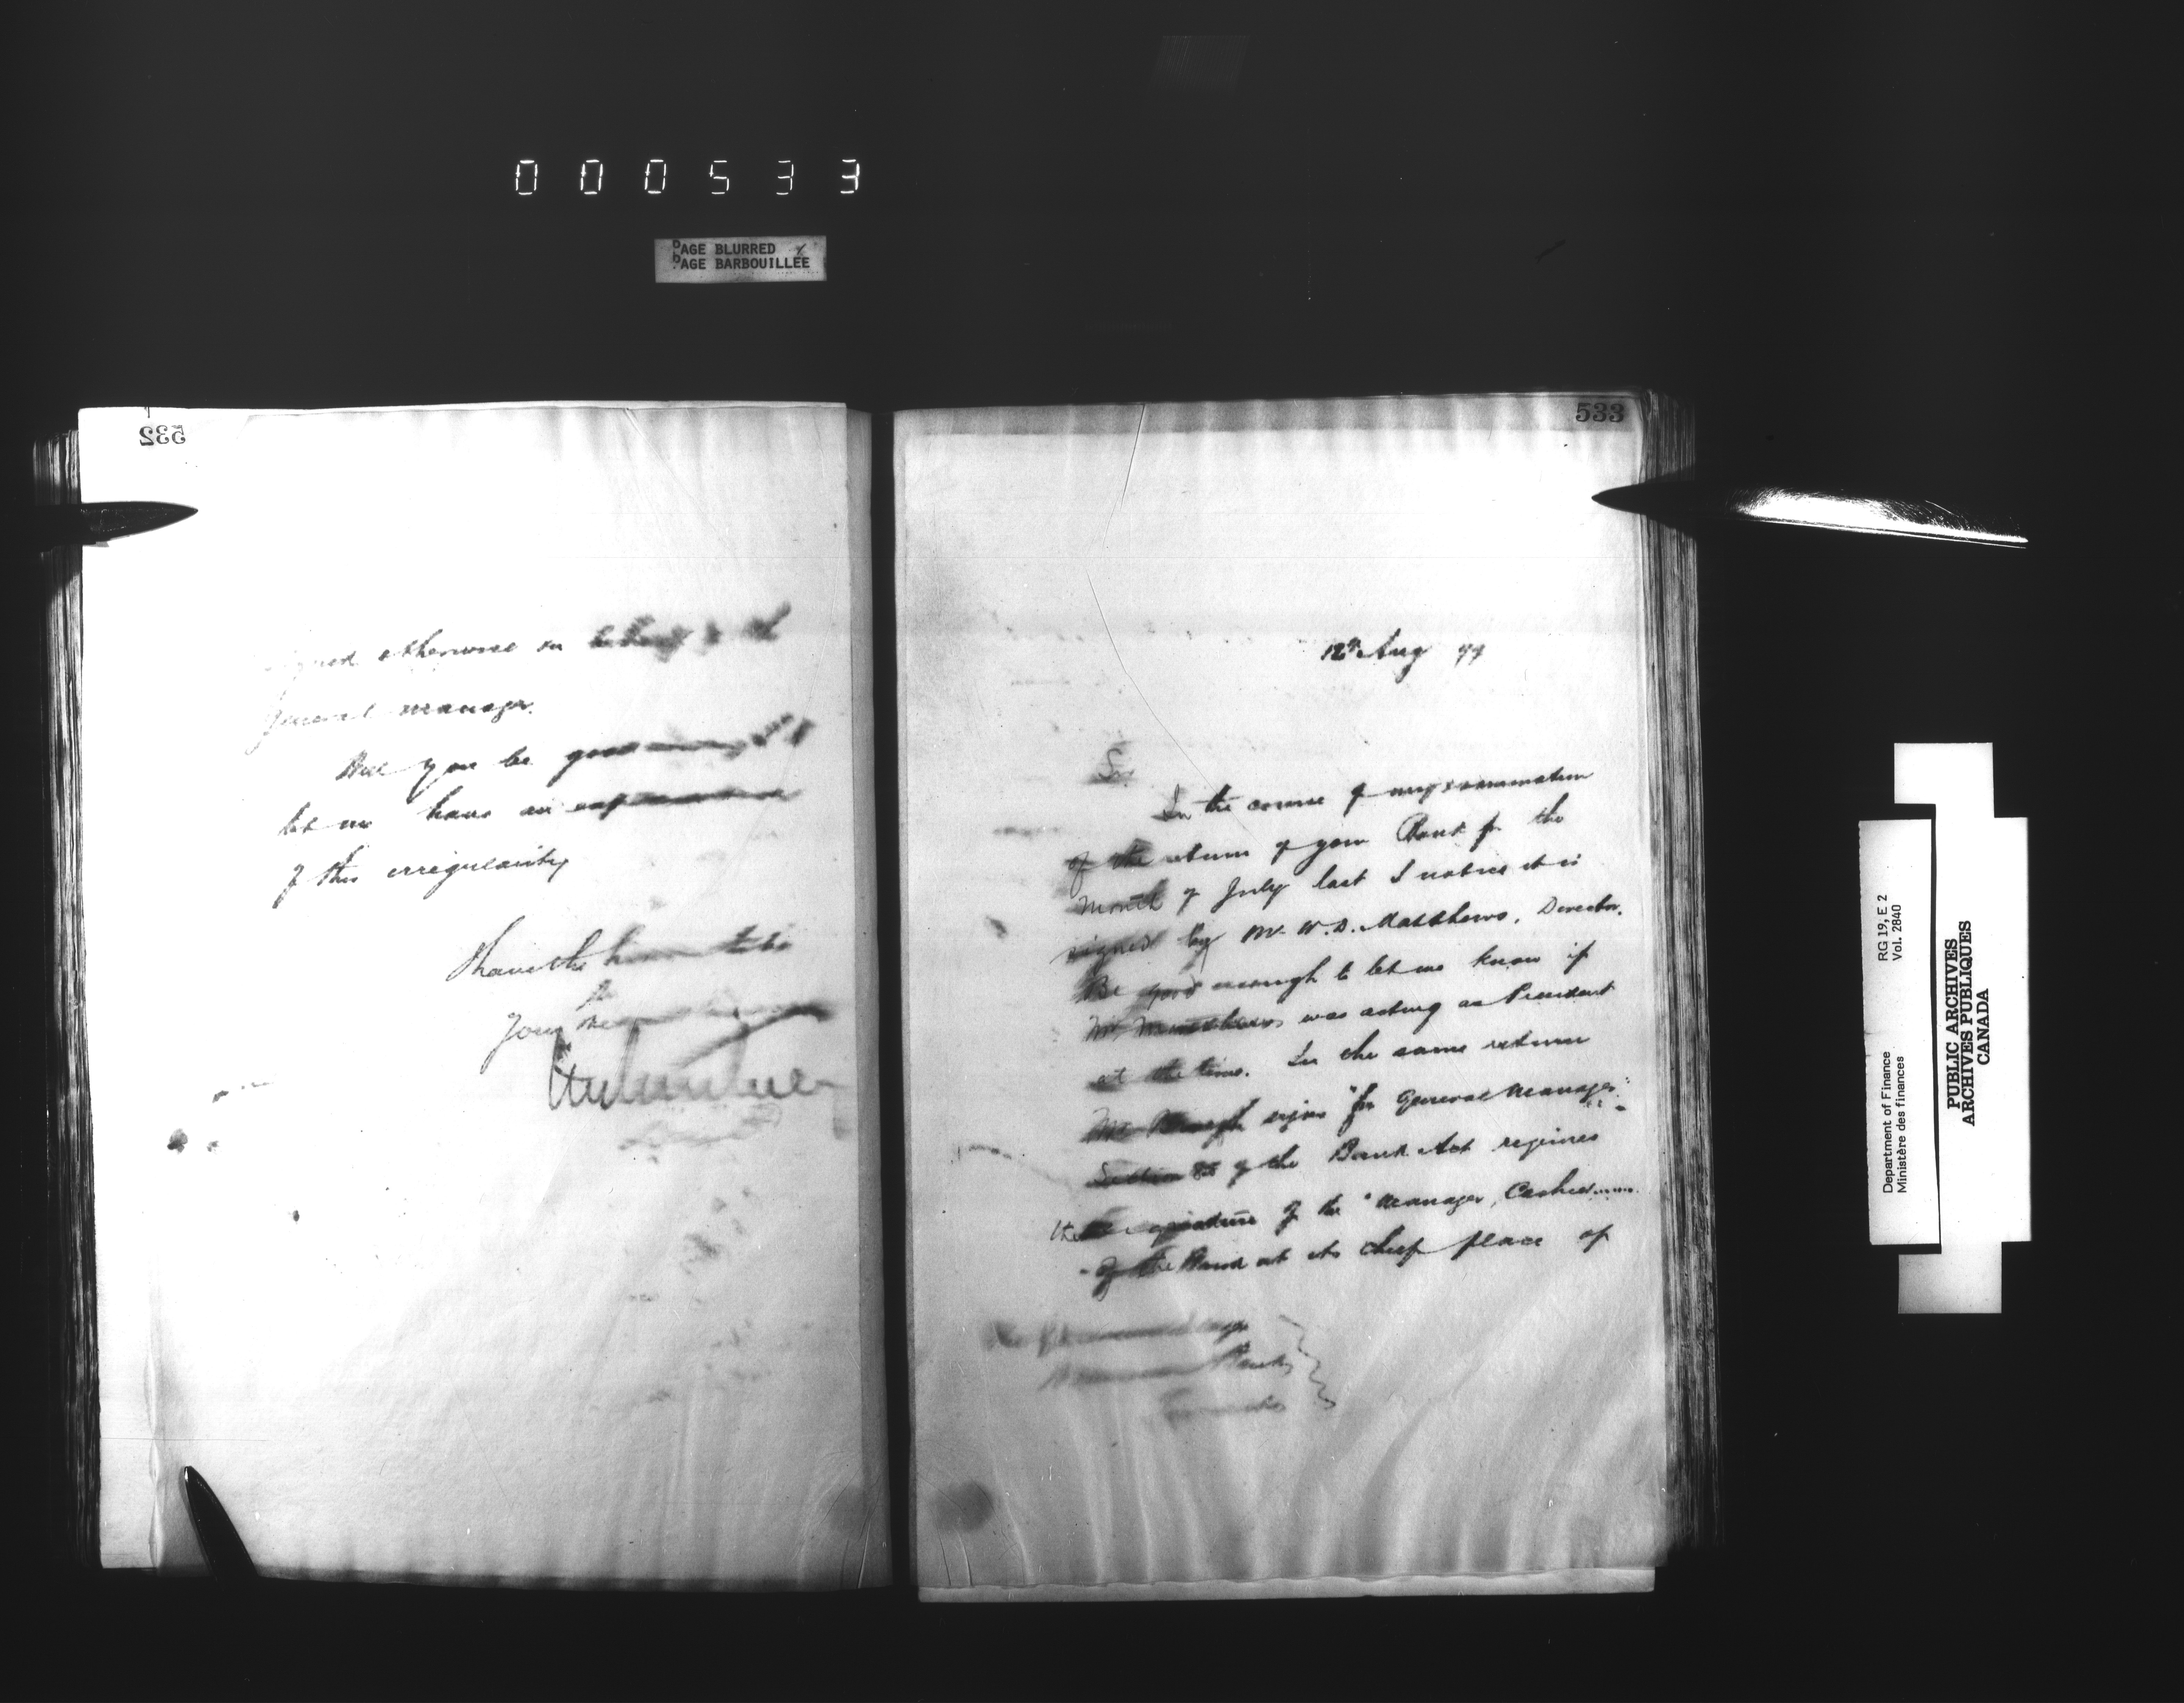 000533
PAGE BLURRED
PAGE BARBOUILLEE
532
signed otherwise on behalf of the
General manager.
Will you be good enough to
let me have an explanation
of this irregularity
I have the honor to be
Sir
Your
533
12th Aug 99
Sir
In the course of my examination
of the return of your Bank for the
month of July last I notice it is
signed by Mr. W. D. Matthews, Director.
Be good enough to let me know if
Mr. Matthews was acting as President
at the time. In the same return
Mr. signs "for General Manager".
Section 85 of the Bank Act requires
the signature of the "Manager, Cashier......
- of the Bank at its chief place of
Bank
Toronto
Department of Finance RG 19, E 2
Ministère des finances Vol. 2840
PUBLIC ARCHIVES
ARCHIVES PUBLIQUES
CANADA